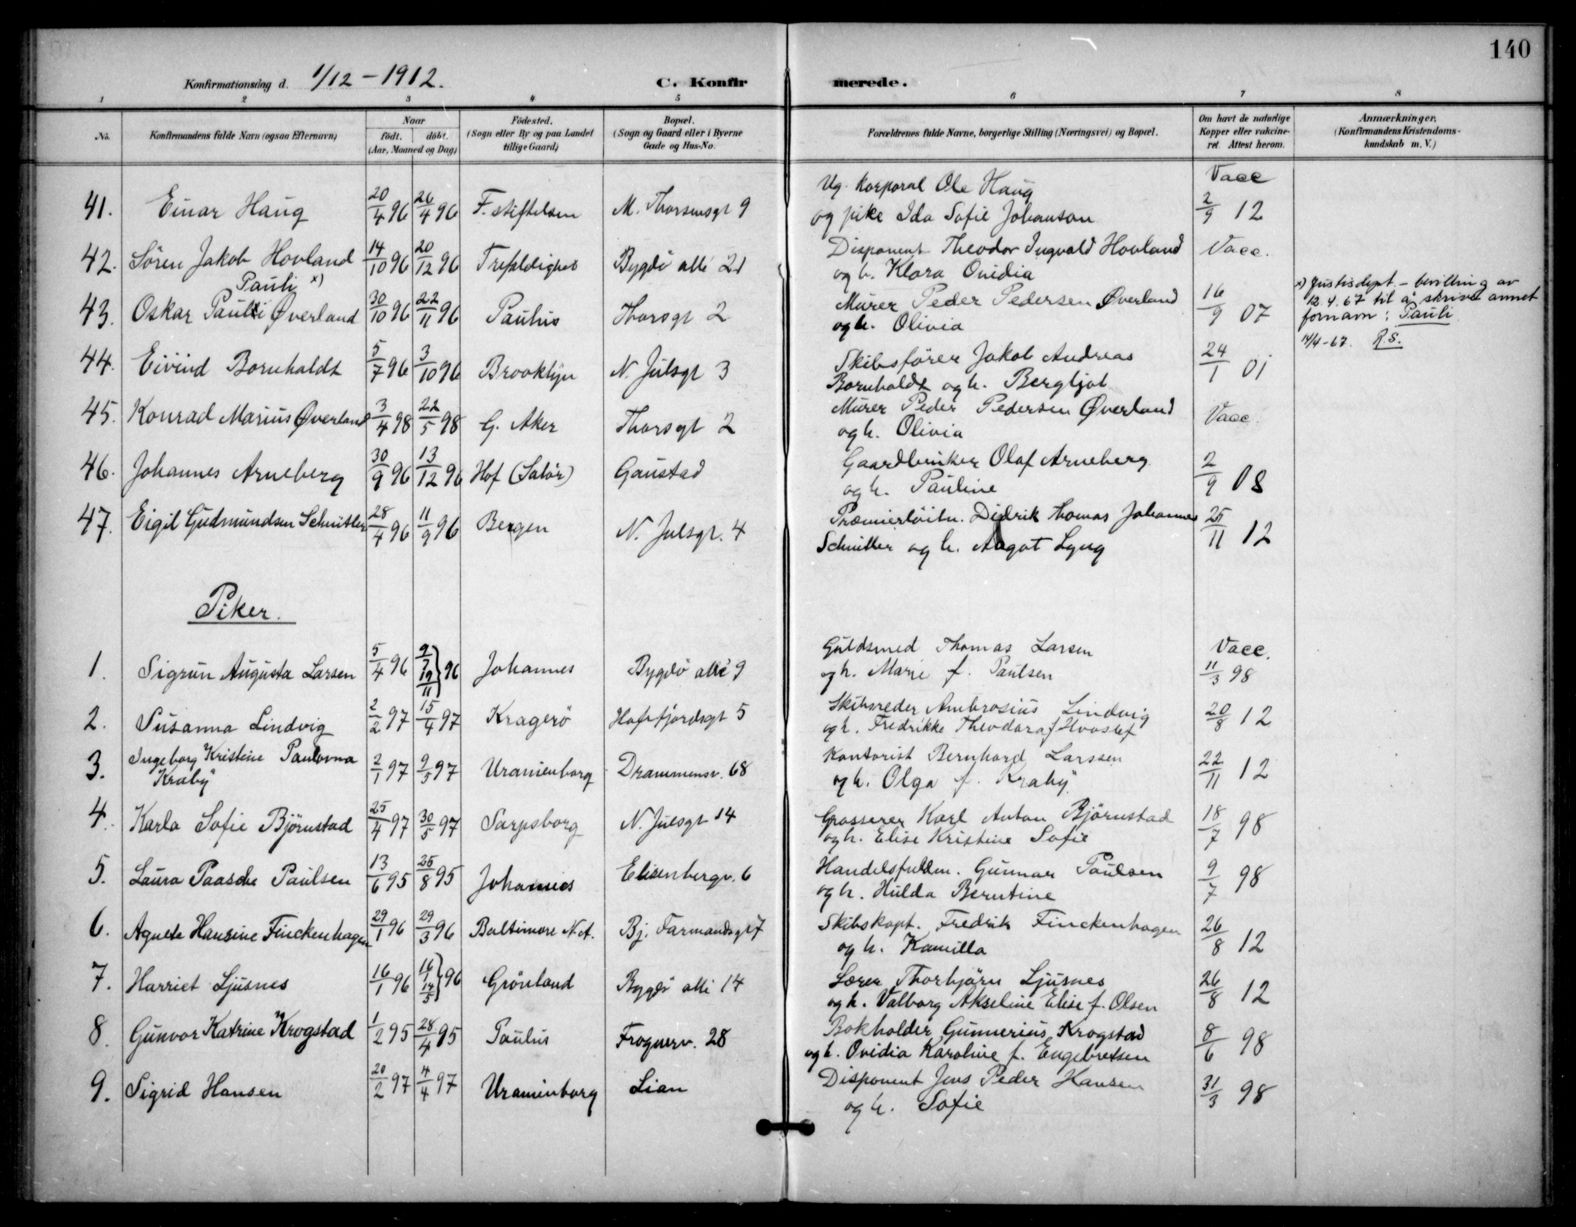 140
Konfirmationsdag d. 1/12 - 1912.
C. Konfirmerede.
1 2 3 4 5 6 7 8
No. Konfirmandens fulde Navn (ogsaa Efternavn) Naar født. døbt. (Aar, Maaned og Dag) Fødested. (Sogn eller By og paa Landet tillige Gaard) Bopæl. (Sogn og Gaard eller i Byerne Gade og Hus-No. Forældrenes fulde Navne, borgerlige Stilling (Næringsvei) og Bopæl. Om havt de naturlige Kopper eller vakcineret. Attest herom. Anmærkninger. (Konfirmandens Kristendomskundskab m. V.)
41. Einar Haug 20/4 96 26/4 96 F. stiftelsen M. Thorsensgt 9 Ug. korporal Ole Haug Vacc
og pike Ida Sofie Johanson 2/9 12
42. Søren Jakob Hovland 14/10 96 20/12 96 Trefoldighet Bygdø allé 21 Disponent Theodor Ingvald Hovland Vacc.
og h. Klara Ovidia
Pauli x)
43. Oskar Paulli Øverland 30/10 96 22/11 96 Paulus Thorsgt 2 Murer Peder Pedersen Øverland 16/9 07
og h. Olivia
x) Justisdept - bevilling av
12.4.67 til å skrive annet
fornavn: Pauli
14/4-67. R.S.
44. Eivind Bornholdt 5/7 96 3/10 96 Brooklyn N. Julsgt 3 Skibsfører Jakob Andreas 24/1 01
Bornholdt og h. Bergljot
45. Konrad Marius Øverland 3/4 98 22/5 98 G. Aker Thorsgt 2 Murer Peder Pedersen Øverland Vacc.
og h. Olivia
46. Johannes Arneberg 30/9 96 13/12 96 Hof (Solør) Gaustad Gaardbruker Olaf Arneberg 2/9 08
og h. Pauline
47. Eigil Gudmundsen Schnitler 28/4 96 11/9 96 Bergen N. Julsgt. 4 Præmierløitn. Didrik Thomas Johannes 25/11 12
Schnitler og h. Aagot Lyng
Piker.
1. Sigrun Augusta Larsen 5/4 96 9/7 19/11 } 96 Johannes Bygdø allé 9 Guldsmed Thomas Larsen Vacc.
og h. Marie f. Paulsen 11/3 98
2. Susanna Lindvig 2/2 97 15/4 97 Kragerø Hafrsfjordsgt 5 Skibsreder Ambrosius Lindvig 20/8 12
og h. Fredrikke Theodora f Hvoslef
3. Ingeborg Kristine Paulovna 2/1 97 9/5 97 Uranienborg Drammensv. 68 Kontorist Bernhard Larssen 22/11 12
Kraby og h. Olga f. Kraby
4. Karla Sofie Bjørnstad 25/4 97 30/5 97 Sarpsborg N. Julsgt 14 Grosserer Karl Anton Bjørnstad 18/7 98
og h. Elise Kristine Sofie
5. Laura Paasche Paulsen 13/6 95 25/8 95 Johannes Elisenbergv. 6 Handelsfuldm. Gunnar Paulsen 9/7 98
og h. Hulda Berntine
6. Agnete Hansine Finckenhagen 29/1 96 29/3 96 Baltimore N.A. Bj. Farmandsgt 7 Skibskapt. Fredrik Finckenhagen 26/8 12
og h. Kamilla
7. Harriet Ljusnes 16/1 96 16/1 14/5 } 96 Grønland Bygdø allé 14 Lærer Thorbjørn Ljusnes 26/8 12
og h. Valborg Akseline Elise f. Olsen
8. Gunvor Katrine Krogstad 1/2 95 28/4 95 Paulus Frognerv. 28 Bokholder Gunnerius Krogstad 8/6 98
og h. Ovidia Karoline f. Engebretsen
9. Sigrid Hansen 20/2 97 4/4 97 Uranienborg Lian Disponent Jens Peder Hansen 31/3 98
og h. Sofie